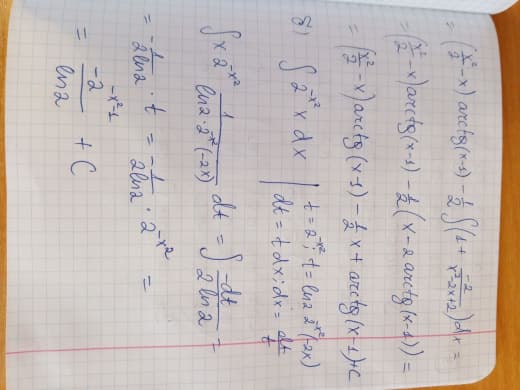 = (x²/2 - x) arctg(x-1) - 1/2 ∫(1 + -2/(x²-2x+2)) dx =
= (x²/2 - x) arctg(x-1) - 1/2 (x - 2 arctg(x-1)) =
= (x²/2 - x) arctg(x-1) - 1/2 x + arctg(x-1) + C
б) ∫ 2^(-x²) x dx | t = 2^(-x²); t' = ln2·2^(-x²)(-2x)
dt = t' dx; dx = dt/t'
∫ x·2^(-x²) 1/(ln2·2^(-x²)(-2x)) dt = ∫ -dt/(2ln2) =
= -1/(2ln2) · t = -1/(2ln2) · 2^(-x²) =
= -2^(-x²-1)/ln2 + C